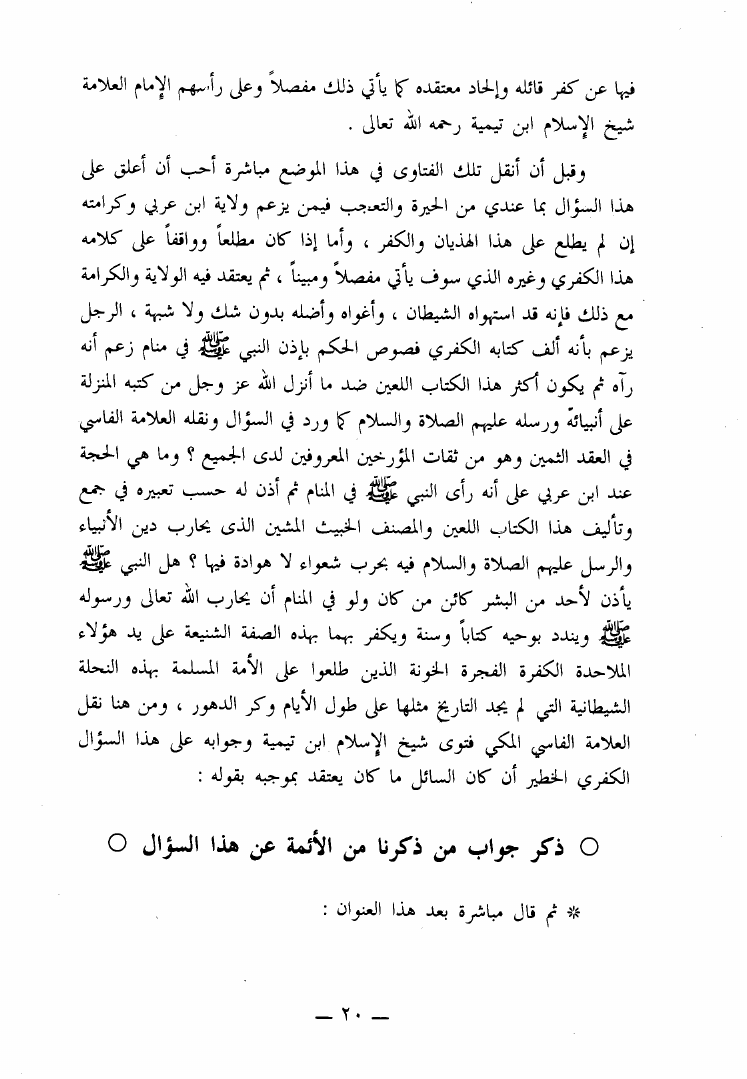 فيها عن كفر قائله وإلحاد معتقده كما يأتي ذلك مفصلاً وعلى رأسهم الإمام العلامة
شيخ الإسلام ابن تيمية رحمه الله تعالى .
وقبل أن أنقل تلك الفتاوى في هذا الموضع مباشرة أحب أن أعلق على
هذا السؤال بما عندي من الحيرة والتعجب فيمن يزعم ولاية ابن عربي وكرامته
إن لم يطلع على هذا الهذيان والكفر ، وأما إذا كان مطلعاً وواقفاً على كلامه
هذا الكفري وغيره الذي سوف يأتي مفصلاً ومبيناً ، ثم يعتقد فيه الولاية والكرامة
مع ذلك فإنه قد استهواه الشيطان ، وأغواه وأضله بدون شك ولا شبهة ، الرجل
يزعم بأنه ألف كتابه الكفري فصوص الحكم بإذن النبي ﷺ في منام زعم أنه
رآه ثم يكون أكثر هذا الكتاب اللعين ضد ما أنزل الله عز وجل من كتبه المنزلة
على أنبيائه ورسله عليهم الصلاة والسلام كما ورد في السؤال ونقله العلامة الفاسي
في العقد الثمين وهو من ثقات المؤرخين المعروفين لدى الجميع ؟ وما هي الحجة
عند ابن عربي على أنه رأى النبي ﷺ في المنام ثم أذن له حسب تعبيره في جمع
وتأليف هذا الكتاب اللعين والمصنف الخبيث المشين الذى يحارب دين الأنبياء
والرسل عليهم الصلاة والسلام فيه بحرب شعواء لا هوادة فيها ؟ هل النبي ﷺ
يأذن لأحد من البشر كائن من كان ولو في المنام أن يحارب الله تعالى ورسوله
ﷺ ويندد بوحيه كتاباً وسنة ويكفر بهما بهذه الصفة الشنيعة على يد هؤلاء
الملاحدة الكفرة الفجرة الخونة الذين طلعوا على الأمة المسلمة بهذه النحلة
الشيطانية التي لم يجد التاريخ مثلها على طول الأيام وكر الدهور ، ومن هنا نقل
العلامة الفاسي المكي فتوى شيخ الإسلام ابن تيمية وجوابه على هذا السؤال
الكفري الخطير أن كان السائل ما كان يعتقد بموجبه بقوله :
○ ذكر جواب من ذكرنا من الأئمة عن هذا السؤال ○
* ثم قال مباشرة بعد هذا العنوان :
— ٢٠ —